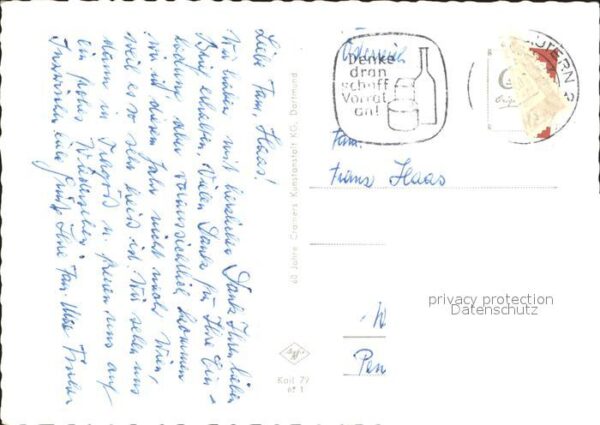 Liebe Fam. Haas!
Wir haben mit herzlichen Dank Ihren lieben
Brief erhalten. Vielen Dank für Ihre Ein-
ladung aber voraussichtlich kommen
wir in diesem Jahr nicht nach Wien,
weil es so sehr heiß ist. Wir sehen uns
dann in u. freuen uns auf
ein frohes Wiedersehen.
Inzwischen liebe Grüße Ihre Fam.
60 Jahre Cramers Kunstanstalt KG, Dortmund
Karl 79
Österreich
Denke
dran
schaff
Vorrat
an!
Fam.
Franz Haas
privacy protection
Datenschutz
W
Pen